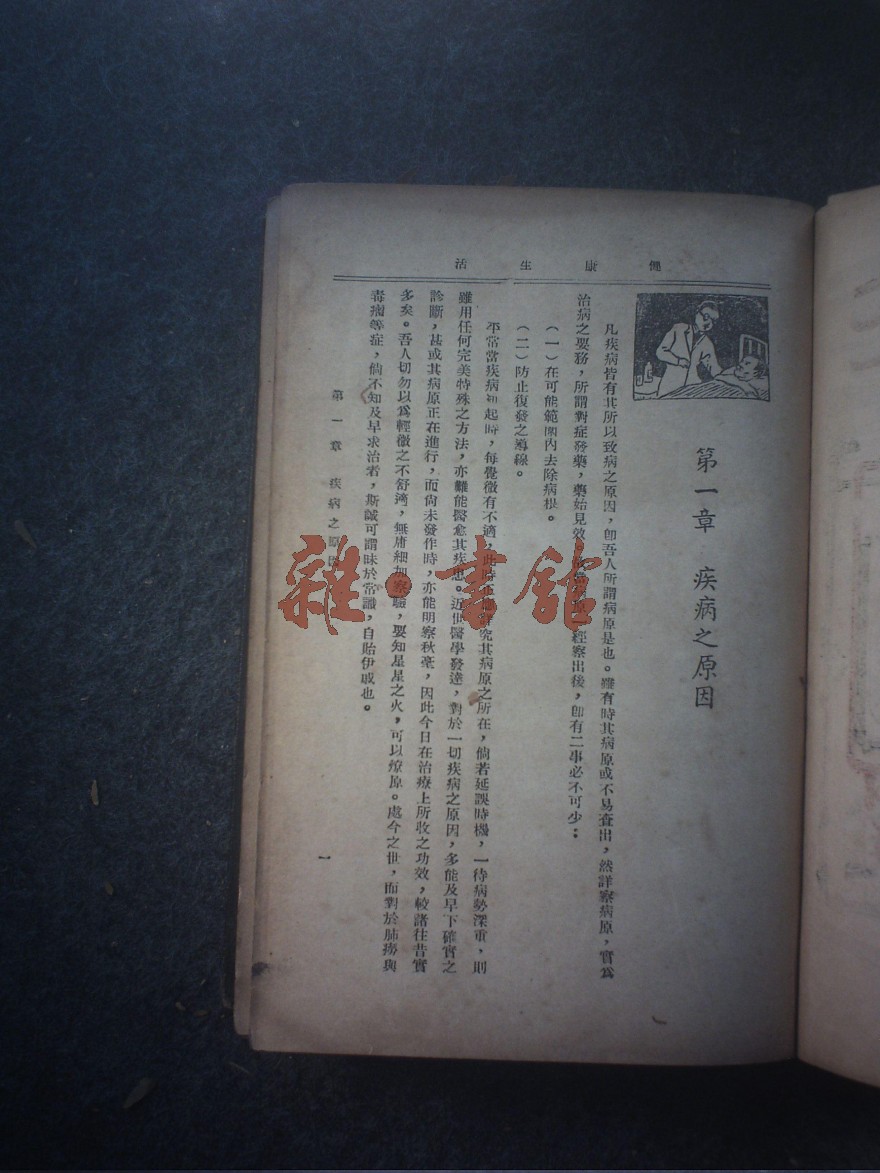 健康生活
第一章 疾病之原因
凡疾病皆有其所以致病之原因，卽吾人所謂病原是也。雖有時其病原或不易查出，然詳察病原，實爲
治病之要務，所謂對症發藥，藥始見效，經察出後，卽有二事必不可少：
（一）在可能範圍內去除病根。
（二）防止復發之導線。
平常當疾病初起時，每覺微有不適，此時究其病原之所在，倘若延誤時機，一待病勢深重，則
雖用任何完美特殊之方法，亦難能醫愈其疾患。近世醫學發達，對於一切疾病之原因，多能及早下確實之
診斷，甚或其病原正在進行，而尙未發作時，亦能明察秋毫，因此今日在治療上所收之功效，較諸往昔實
多矣。吾人切勿以爲輕微之不舒適，無庸細加察驗，要知星星之火，可以燎原。處今之世，而對於肺癆與
毒瘤等症，倘不知及早求治者，斯誠可謂昧於常識，自貽伊戚也。
第一章 疾病之原因
一
雜·書館